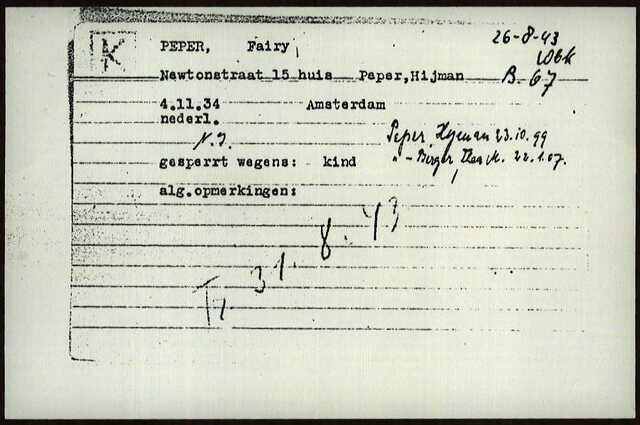 K
PEPER, Fairy
26-8-43
Newtonstraat 15 huis Peper,Hijman
B. 67
4.11.34 Amsterdam
nederl.
N.I.
Peper, Hyman 23.10.99
gesperrt wegens: kind
" - Berger 22.1.07.
alg.opmerkingen:
31. 8. 43